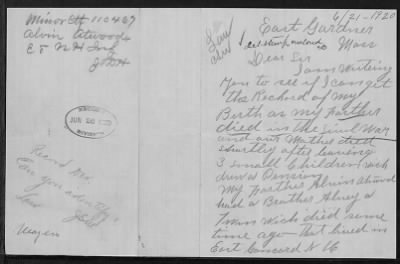 Minor Ctf 110467
Alvin Atwood
E 5 N H Inf
6/21-1920
East Gardner
Mass
Dear Sir
I am Writing
you to see if I can get
the Record of my
Birth as my Farther
died in the Civil War
and our Mother died
shortly after leaving
3 small Children wich
drew a Pension
My Farther Alvin Atwood
had a Brother Alvey a
Twin wich died some
time ago that lived in
East Concord N H
JUN 1920
Can you identify
Law